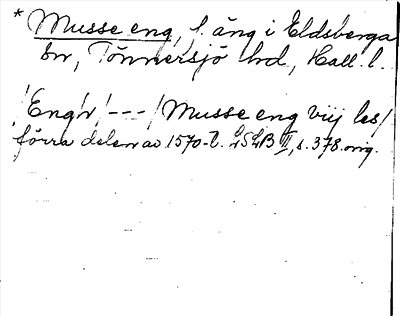 * Musse eng, f. äng i Eldsberga
sn, Tönnersjö hd, Hall. l.
/Engr/ --- /Musse eng vij les/
förra delen av 1570-t. GSLB II, s. 378. orig.